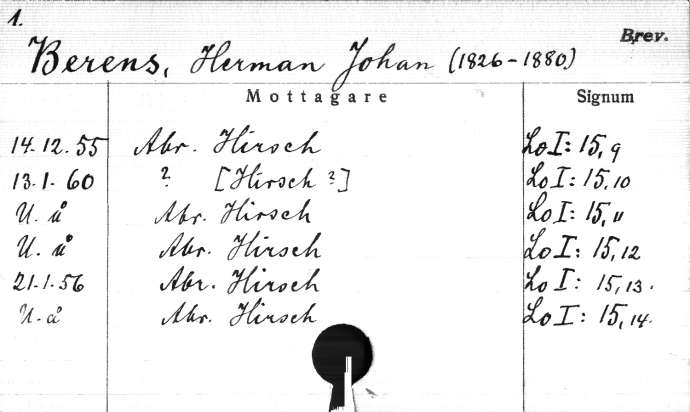 1.
Brev.
Berens, Herman Johan (1826-1880)
Mottagare Signum
14.12.55 Abr. Hirsch LoI: 15,9
13.1.60 ? [Hirsch ?] LoI: 15,10
U. å Abr. Hirsch LoI: 15,11
U. å Abr. Hirsch LoI: 15,12
21.1.56 Abr. Hirsch LoI: 15,13.
U. å Abr. Hirsch LoI: 15,14.